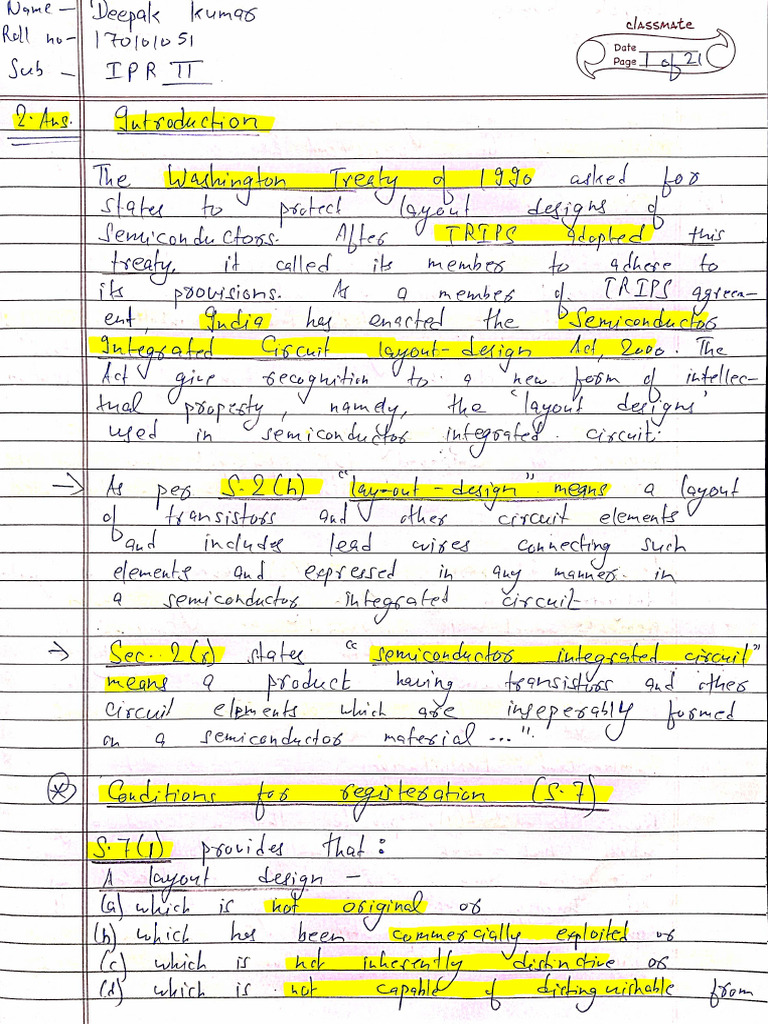 Name - Deepak Kumar
Roll no - 170101051
Sub - IPR II
classmate
Date
Page 1 of 21
2. Ans. Introduction
The Washington Treaty of 1990 asked for
states to protect layout designs of
semiconductors. After TRIPS adopted this
treaty, it called its member to adhere to
its provisions. As a member of TRIPS agreem-
ent, India has enacted the Semiconductor
Integrated Circuit layout-design Act, 2000. The
Act give recognition to a new form of intellec-
tual property, namely, the "layout designs"
used in semiconductor integrated circuit.
→ As per S.2(h) "lay-out-design" means a layout
of transistors and other circuit elements
and includes lead wires connecting such
elements and expressed in any manner in
a semiconductor integrated circuit
→ Sec. 2(r) states "semiconductor integrated circuit"
means a product having transistors and other
circuit elements which are inseperably formed
on a semiconductor material ...".
* Conditions for registeration (S.7)
S.7(1) provides that:
A layout design -
(a) which is not original or
(b) which has been commercially exploited or
(c) which is not inherently distinctive or
(d) which is not capable of distinguishable from